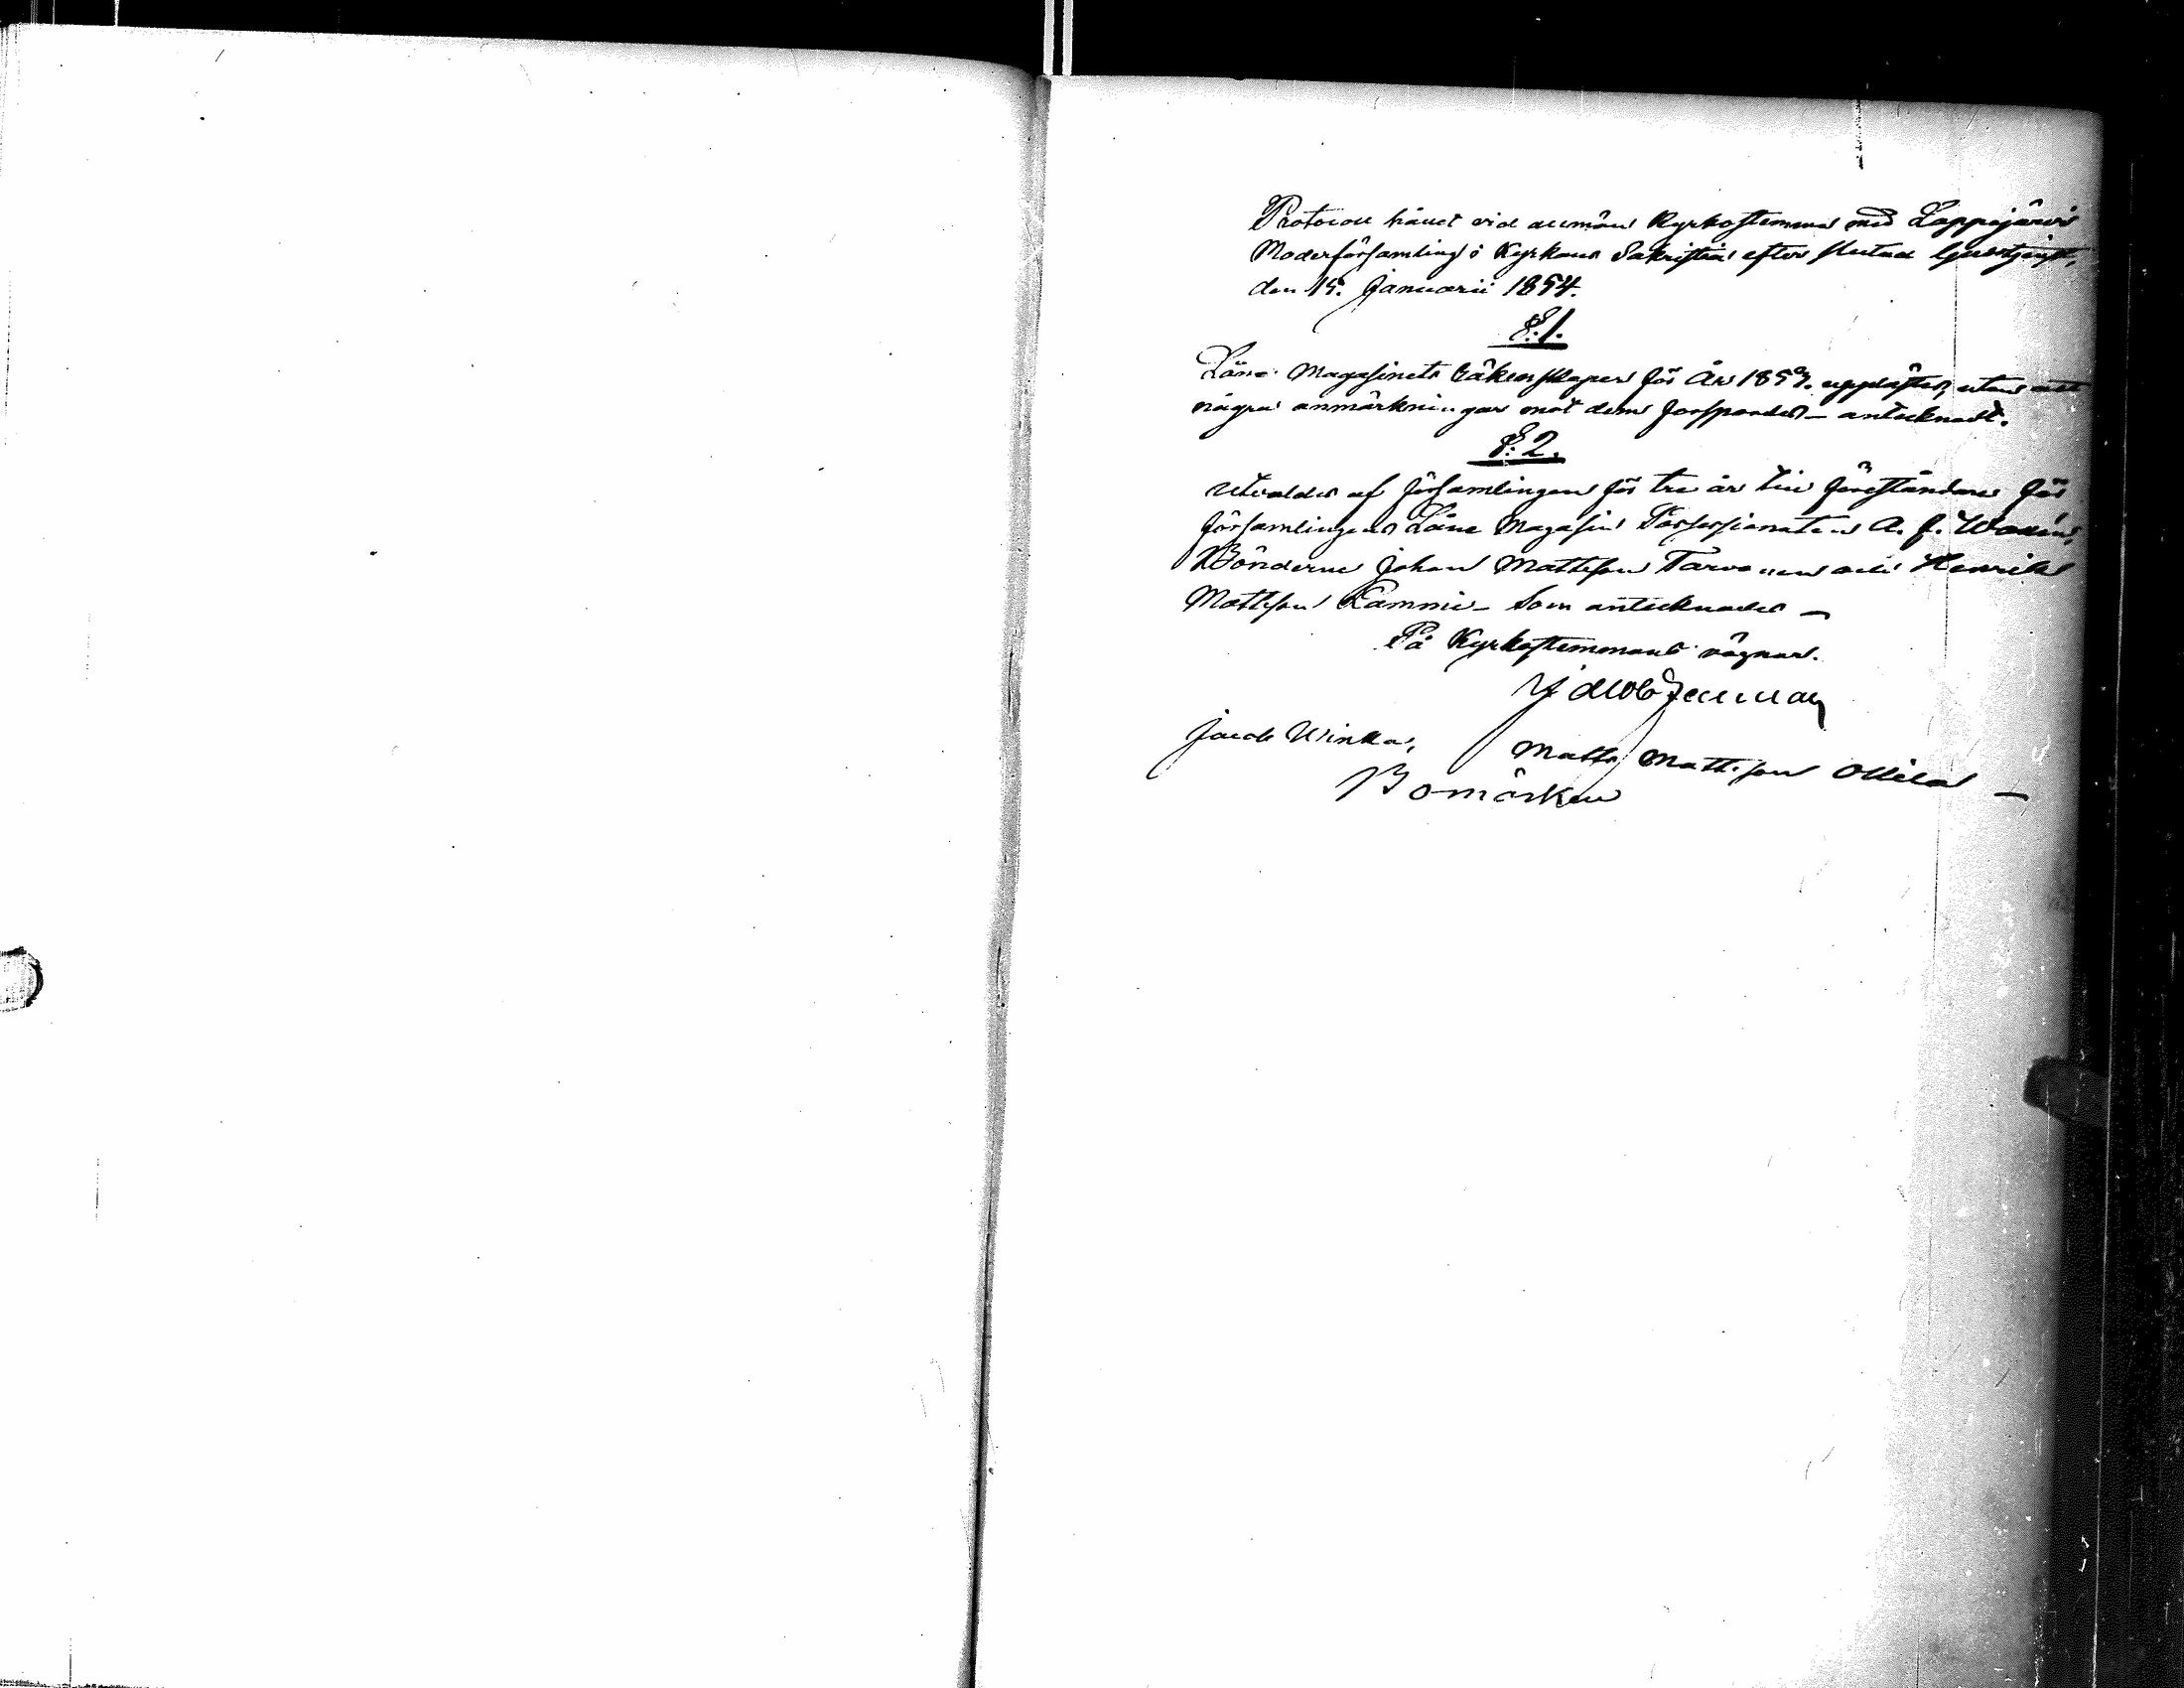 Protocoll hållet vid allmän Kyrkostemma med Lappajärvi
Moderförsamling i Kyrkans Sakristia efter slutad Gudstjenst,
den 15. Januarii 1854.
§. 1.
Låne Magasinets räkenskaper för År 1853. upplästes, utan att
några anmärkningar mot dem förspordes – antecknadt.
§. 2.
Utvaldes af församlingen för tre år till föreståndare för
församlingens Låne Magasin Possessionaten A. J.
Bönderne Johan Mattsson Tarvonen och Henrik
Mattsson Lammi – Som antecknades –
På Kyrkostemmans vägnar.
Jacob
Matts Mattsson Ollila –
Bomärken